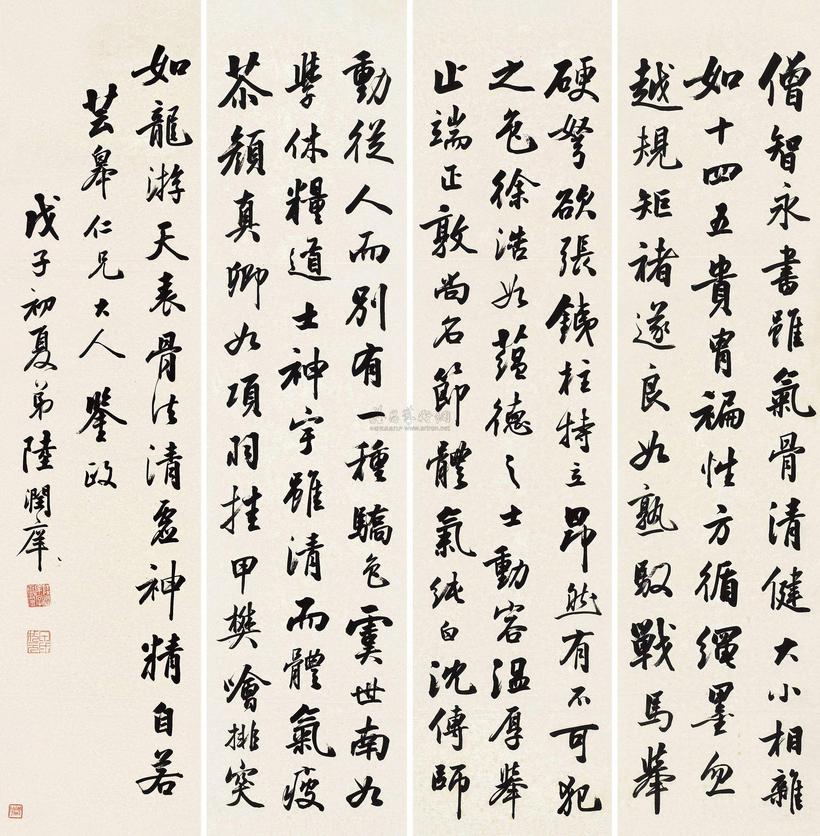 僧智永書雖氣骨清健大小相雜
如十四五貴胄褊性方循繩墨忽
越規矩褚遂良如熟馭戰馬舉
硬弩欲張銕柱特立昂然有不可犯
之色徐浩如蘊德之士動容溫厚舉
止端正敦尚名節體氣純白沈傳師
動從人而別有一種驕色虞世南如
學休糧道士神宇雖清而體氣疲
苶顏真卿如項羽挂甲樊噲排突
如龍游天表骨法清虛神精自若
芸皋仁兄大人鑒政
戊子初夏弟陸潤庠